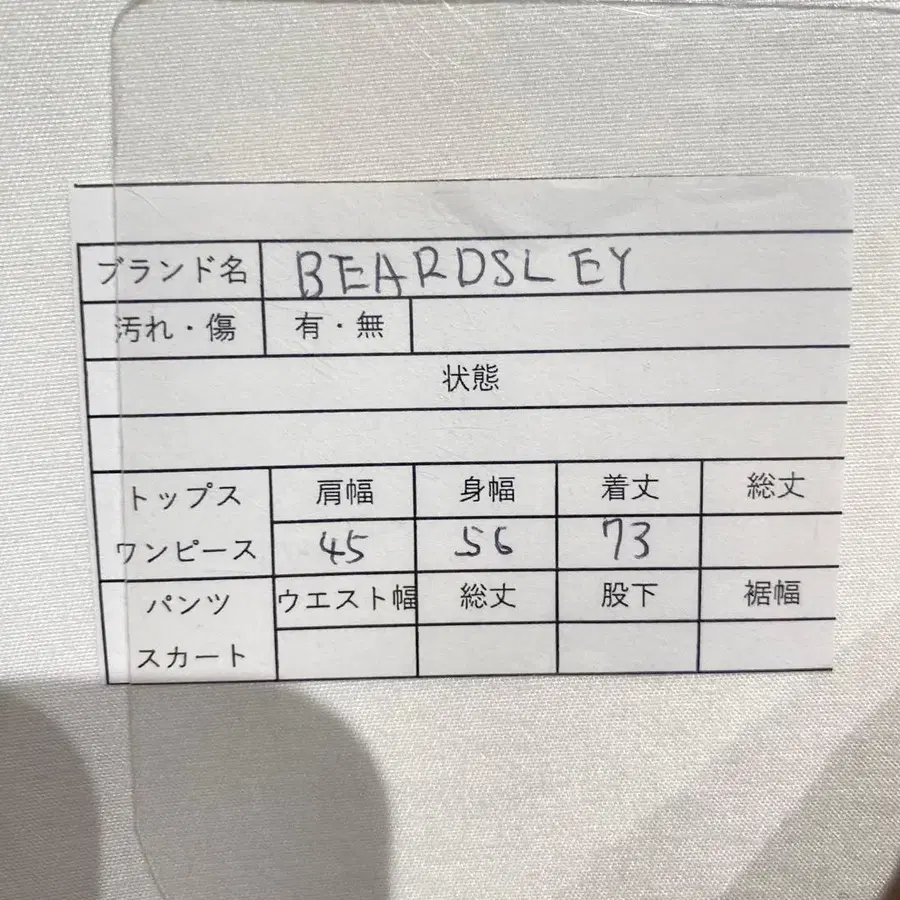 ブランド名 BEARDSLEY
汚れ・傷 有・無
状態
トップス 肩幅 身幅 着丈 総丈
ワンピース 45 56 73
パンツ ウエスト幅 総丈 股下 裾幅
スカート